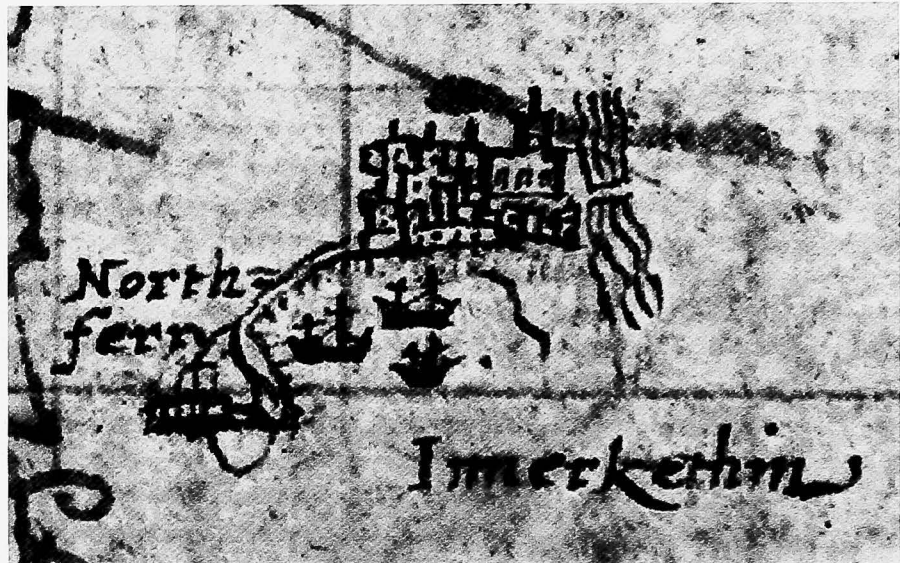 North=
ferry
Innerkethin